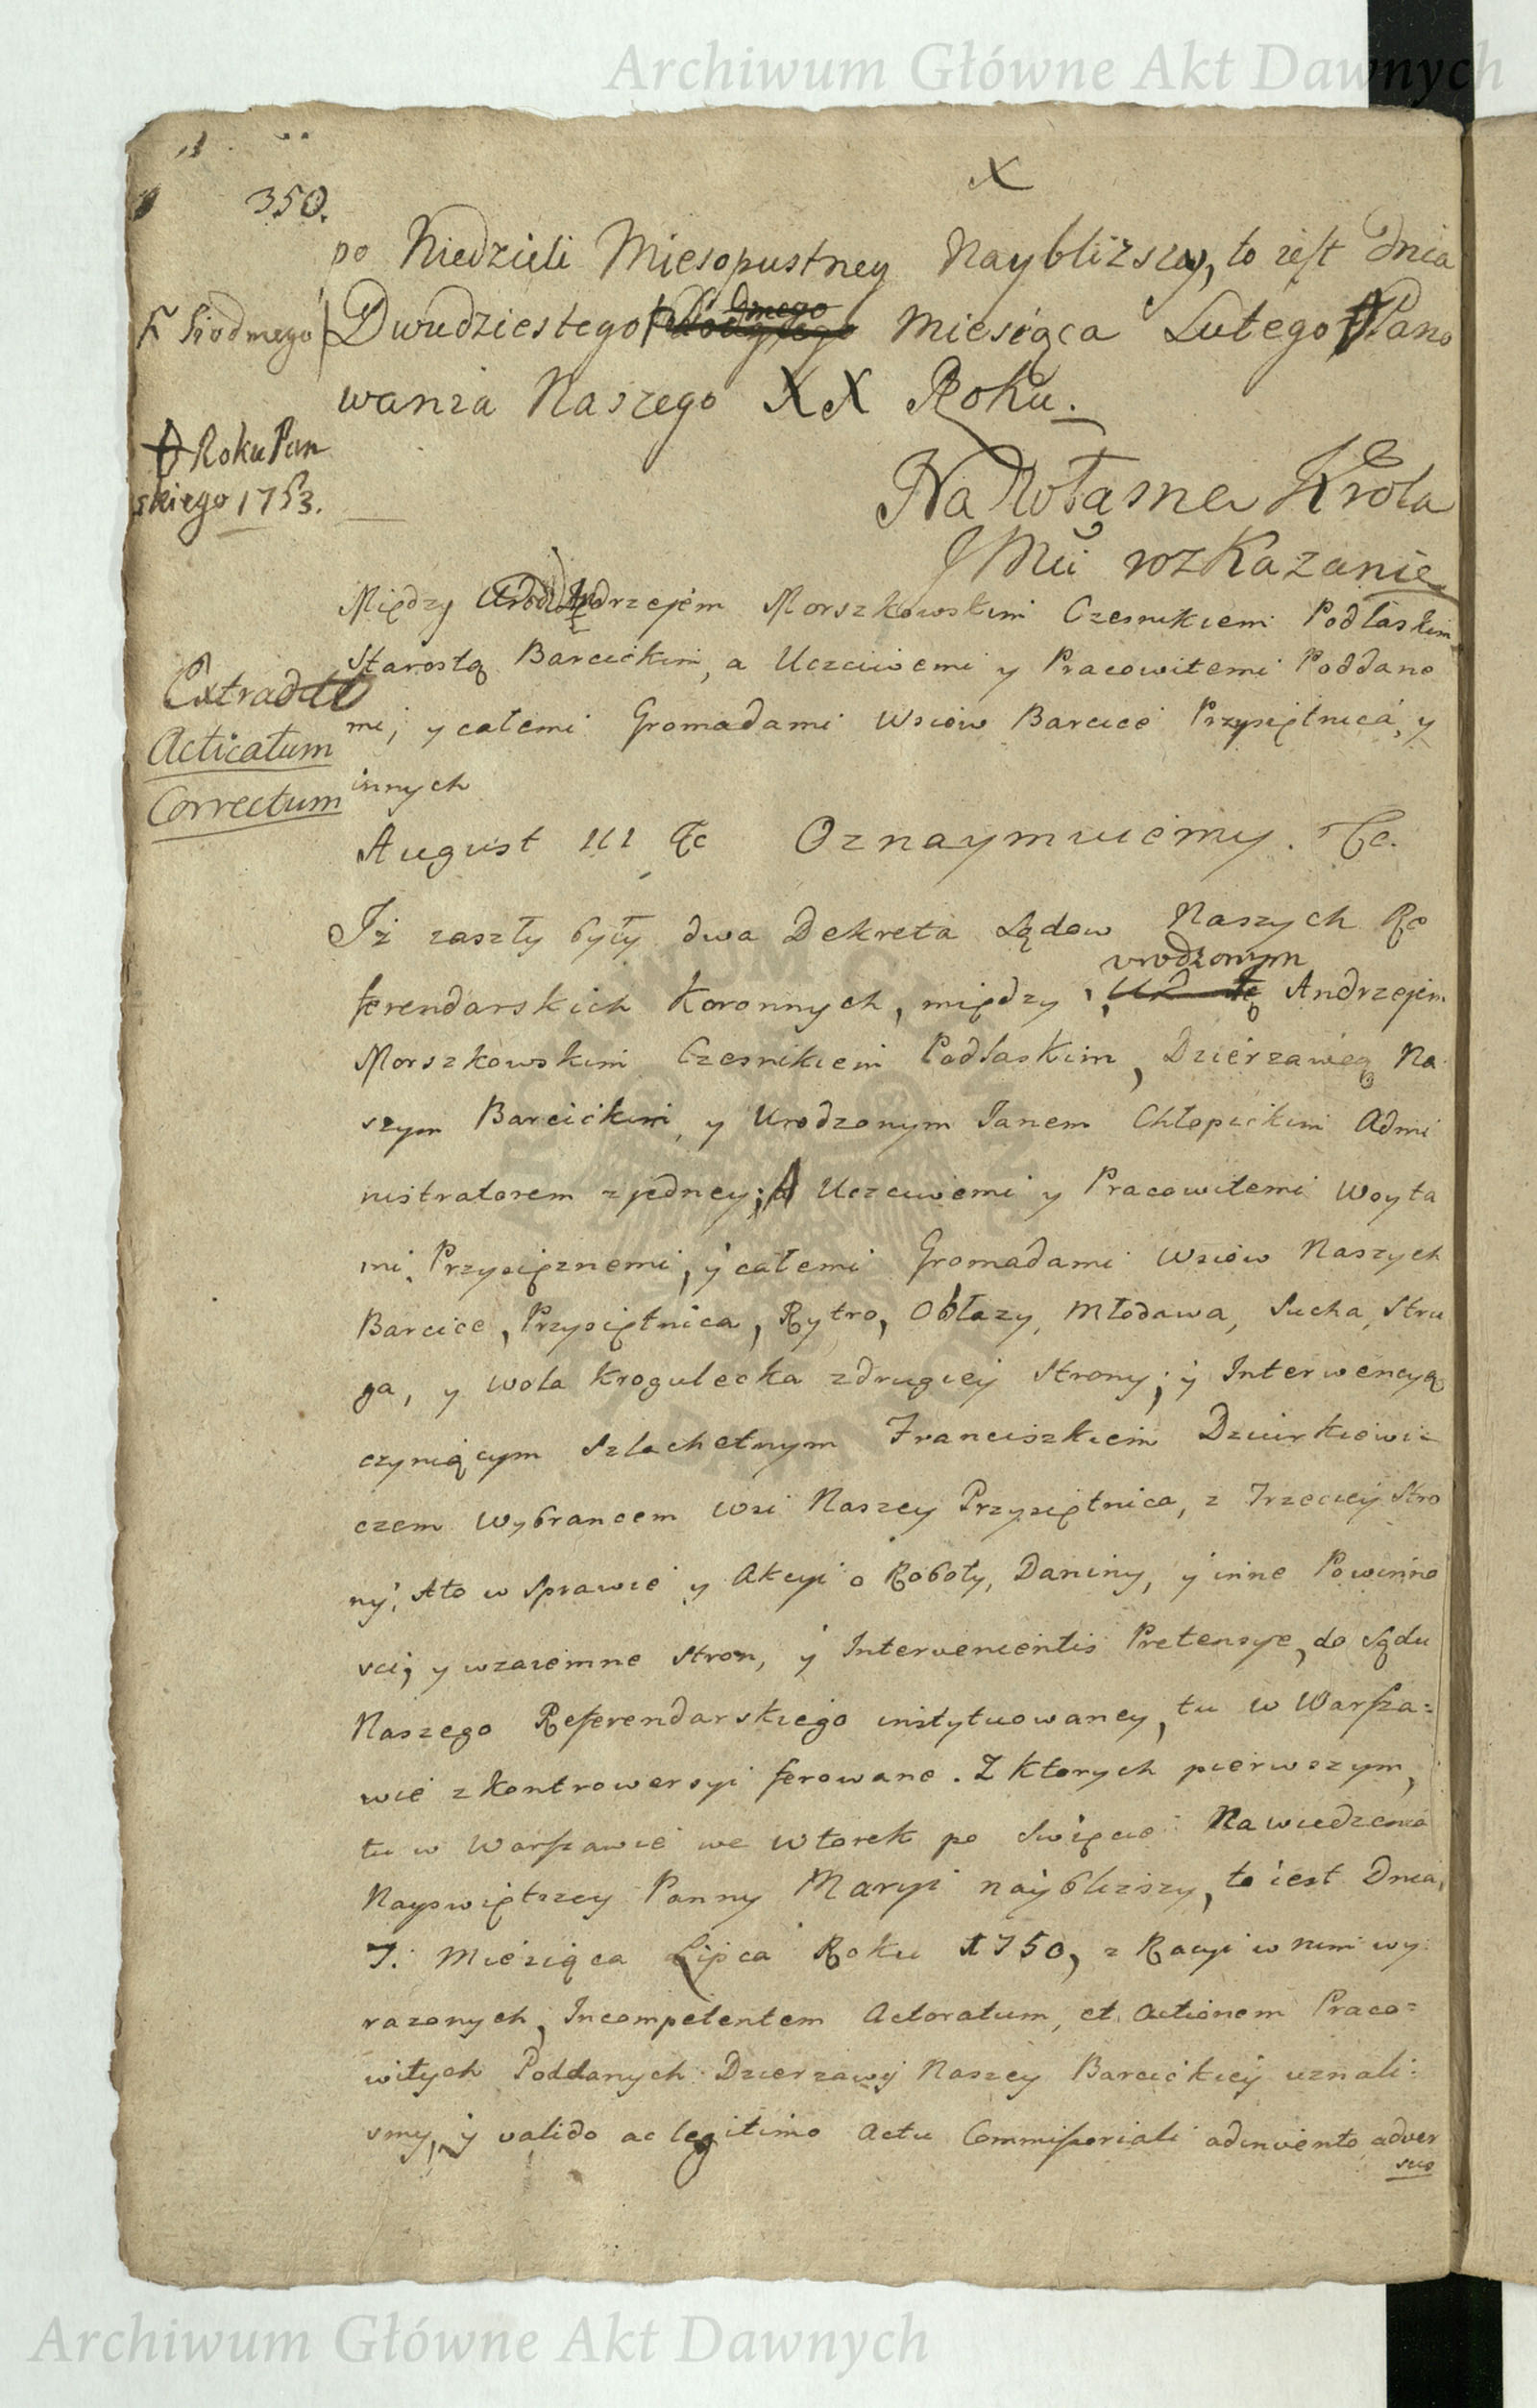 Archiwum Główne Akt Dawnych
350.
X
po Niedzieli Miesopustney Naybliższey, to iest Dnia
Siodmego
Dwudziestego Miesiąca Lutego Pano
wania Naszego XX Roku.
Roku Pan
skiego 1753.
Na Własne Krola
JMci rozkazanie
Między Urodz Andrzejem Morszkowskim Czesnikiem Podlaskim
Starostą Barcickim, a Uczciwemi y Pracowitemi Poddane
mi, y całemi Gromadami Wsiow Barcice Przysietnica, y
innych
Extradit
Acticatum
Correctum
August III &c Oznaymuiemy. &c.
Iż zaszły były dwa Dekreta Sądow Naszych Re
ferendarskich Koronnych, między urodzonym Andrzejem
Morszkowskim Czesnikiem Podlaskim, Dzierzawcą Na
szym Barcickim, y Urodzonym Janem Chłopickim Admi
nistratorem z jedney; A Uczciwemi y Pracowitemi Woyta
mi, Przysiężnemi, y całemi Gromadami Wsiow Naszych
Barcice, Przysiętnica, Rytro, Obłazy, Młodawa, Sucha Stru
ga, y Wola Krogulecka z drugiey Strony; y Interwencyą
czyniącym Szlachetnym Franciszkiem Dziurkiewi
czem Wybrancem Wsi Naszey Przysiętnica, z Trzeciey Stro
ny; Ato w Sprawie y Akcyi o Roboty, Daniny, y inne Powinno
sci, y wzaiemne Stron, y Intervenientis Pretensye, do Sądu
Naszego Referendarskiego instytuowaney, tu w Warsza=
wie z Kontrowersyi ferowane. Z Ktorych pierwszym,
tu w Warszawie we Wtorek po Swięcie Nawiedzenia
Nayswiętszey Panny Maryi naybliższy, to iest Dnia
7. Miesiąca Lipca Roku 1750, z Racyi w nim wy
razonych, Incompetentem Actoratum, et Actionem Praco=
witych Poddanych Dzierzawy Naszey Barcickiey uznali
smy, y valido ac legitimo Actu Commissoriali adinvento adver
sus
Archiwum Główne Akt Dawnych